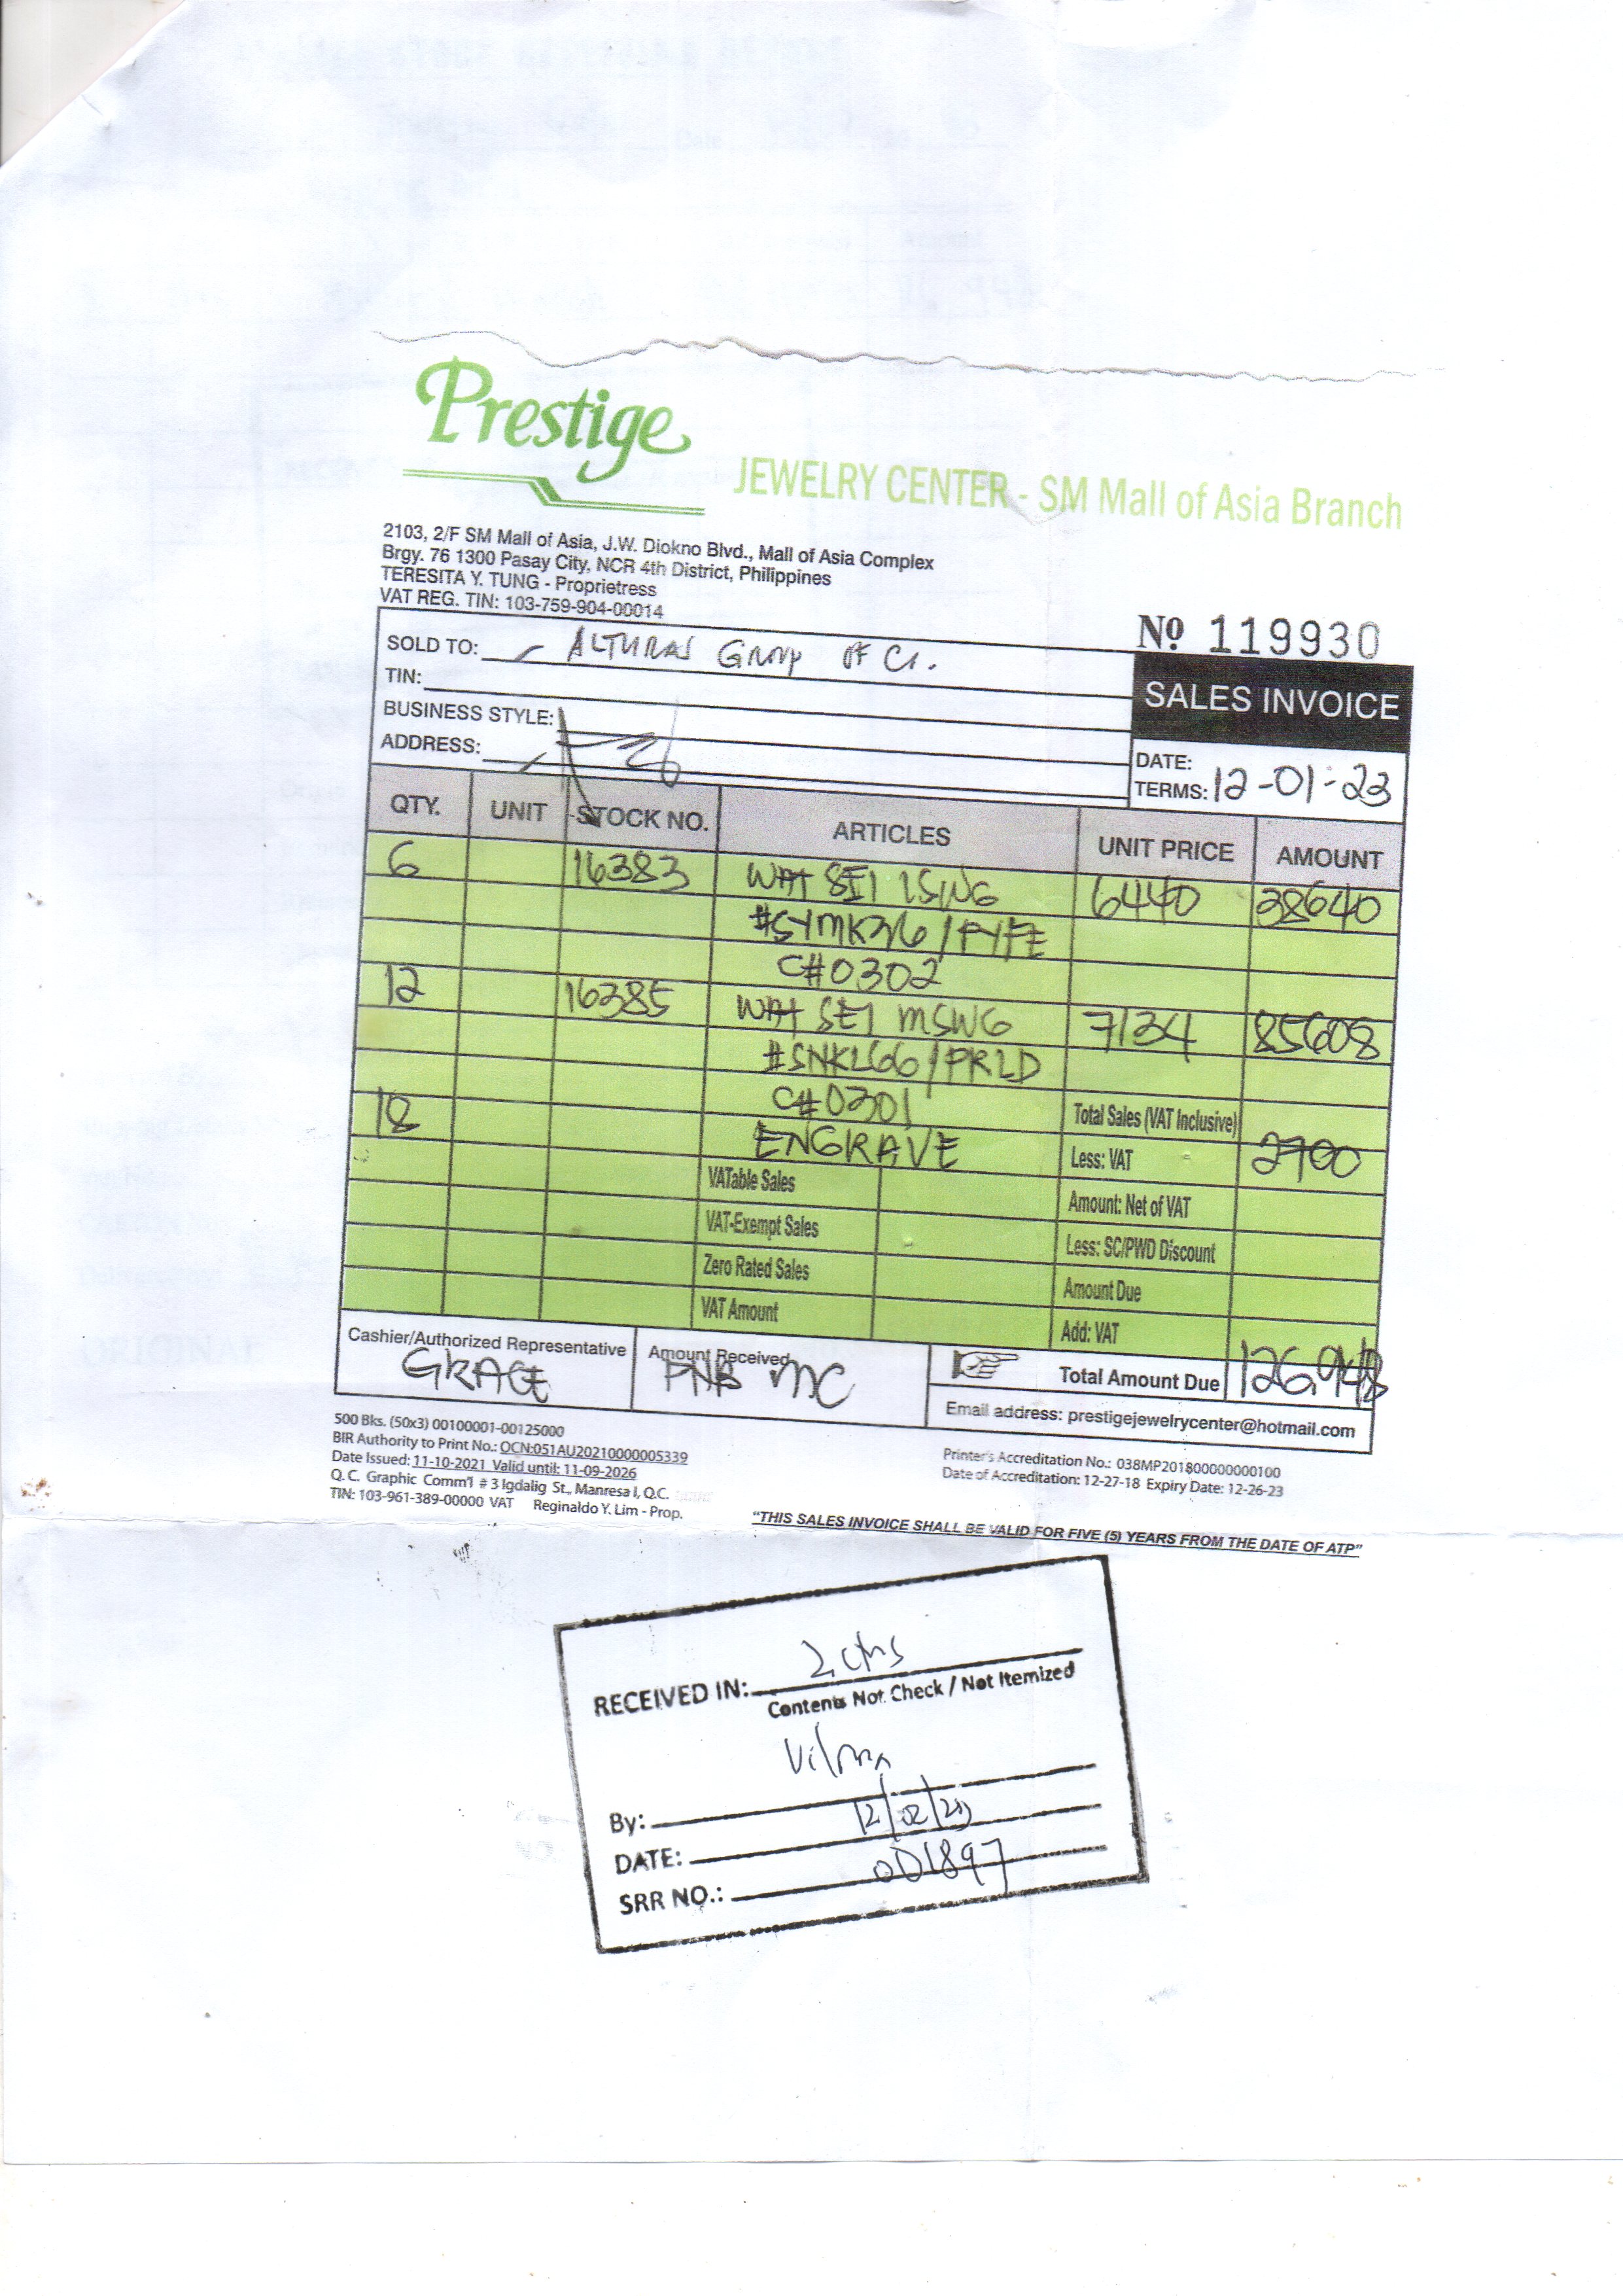 Prestige
JEWELRY CENTER - SM Mall of Asia Branch
2103, 2/F SM Mall of Asia, J.W. Diokno Blvd., Mall of Asia Complex
Brgy. 76 1300 Pasay City, NCR 4th District, Philippines
TERESITA Y. TUNG - Proprietress
VAT REG. TIN: 103-759-904-00014
Nº 119930
SOLD TO: ALTURAS Group OF Co.
SALES INVOICE
TIN:
BUSINESS STYLE:
ADDRESS:
DATE:
TERMS: 12-01-23
QTY. UNIT STOCK NO. ARTICLES UNIT PRICE AMOUNT
6 16383 WAT SEI LSWG 6440 38640
#SYMK36/FYFE
C#0302
12 16385 WAT SEI MSWG 7134 85608
#SNKL66/PRLD
C#0301 Total Sales (VAT Inclusive)
18 ENGRAVE Less: VAT 2700
VATable Sales Amount: Net of VAT
VAT-Exempt Sales Less: SC/PWD Discount
Zero Rated Sales Amount Due
VAT Amount Add: VAT
Cashier/Authorized Representative Amount Received Total Amount Due 126,948
GRACE PNB MC
Email address: prestigejewelrycenter@hotmail.com
500 Bks. (50x3) 00100001-00125000
BIR Authority to Print No.: OCN:051AU20210000005339
Date Issued: 11-10-2021 Valid until: 11-09-2026
Q. C. Graphic Comm'l # 3 Igdalig St., Manresa I, Q.C.
TIN: 103-961-389-00000 VAT Reginaldo Y. Lim - Prop.
Printer's Accreditation No.: 038MP201800000000100
Date of Accreditation: 12-27-18 Expiry Date: 12-26-23
"THIS SALES INVOICE SHALL BE VALID FOR FIVE (5) YEARS FROM THE DATE OF ATP"
RECEIVED IN: 2 ctns
Contents Not Check / Not Itemized
Vilma
By:
DATE: 12/02/23
SRR NO.: 001897